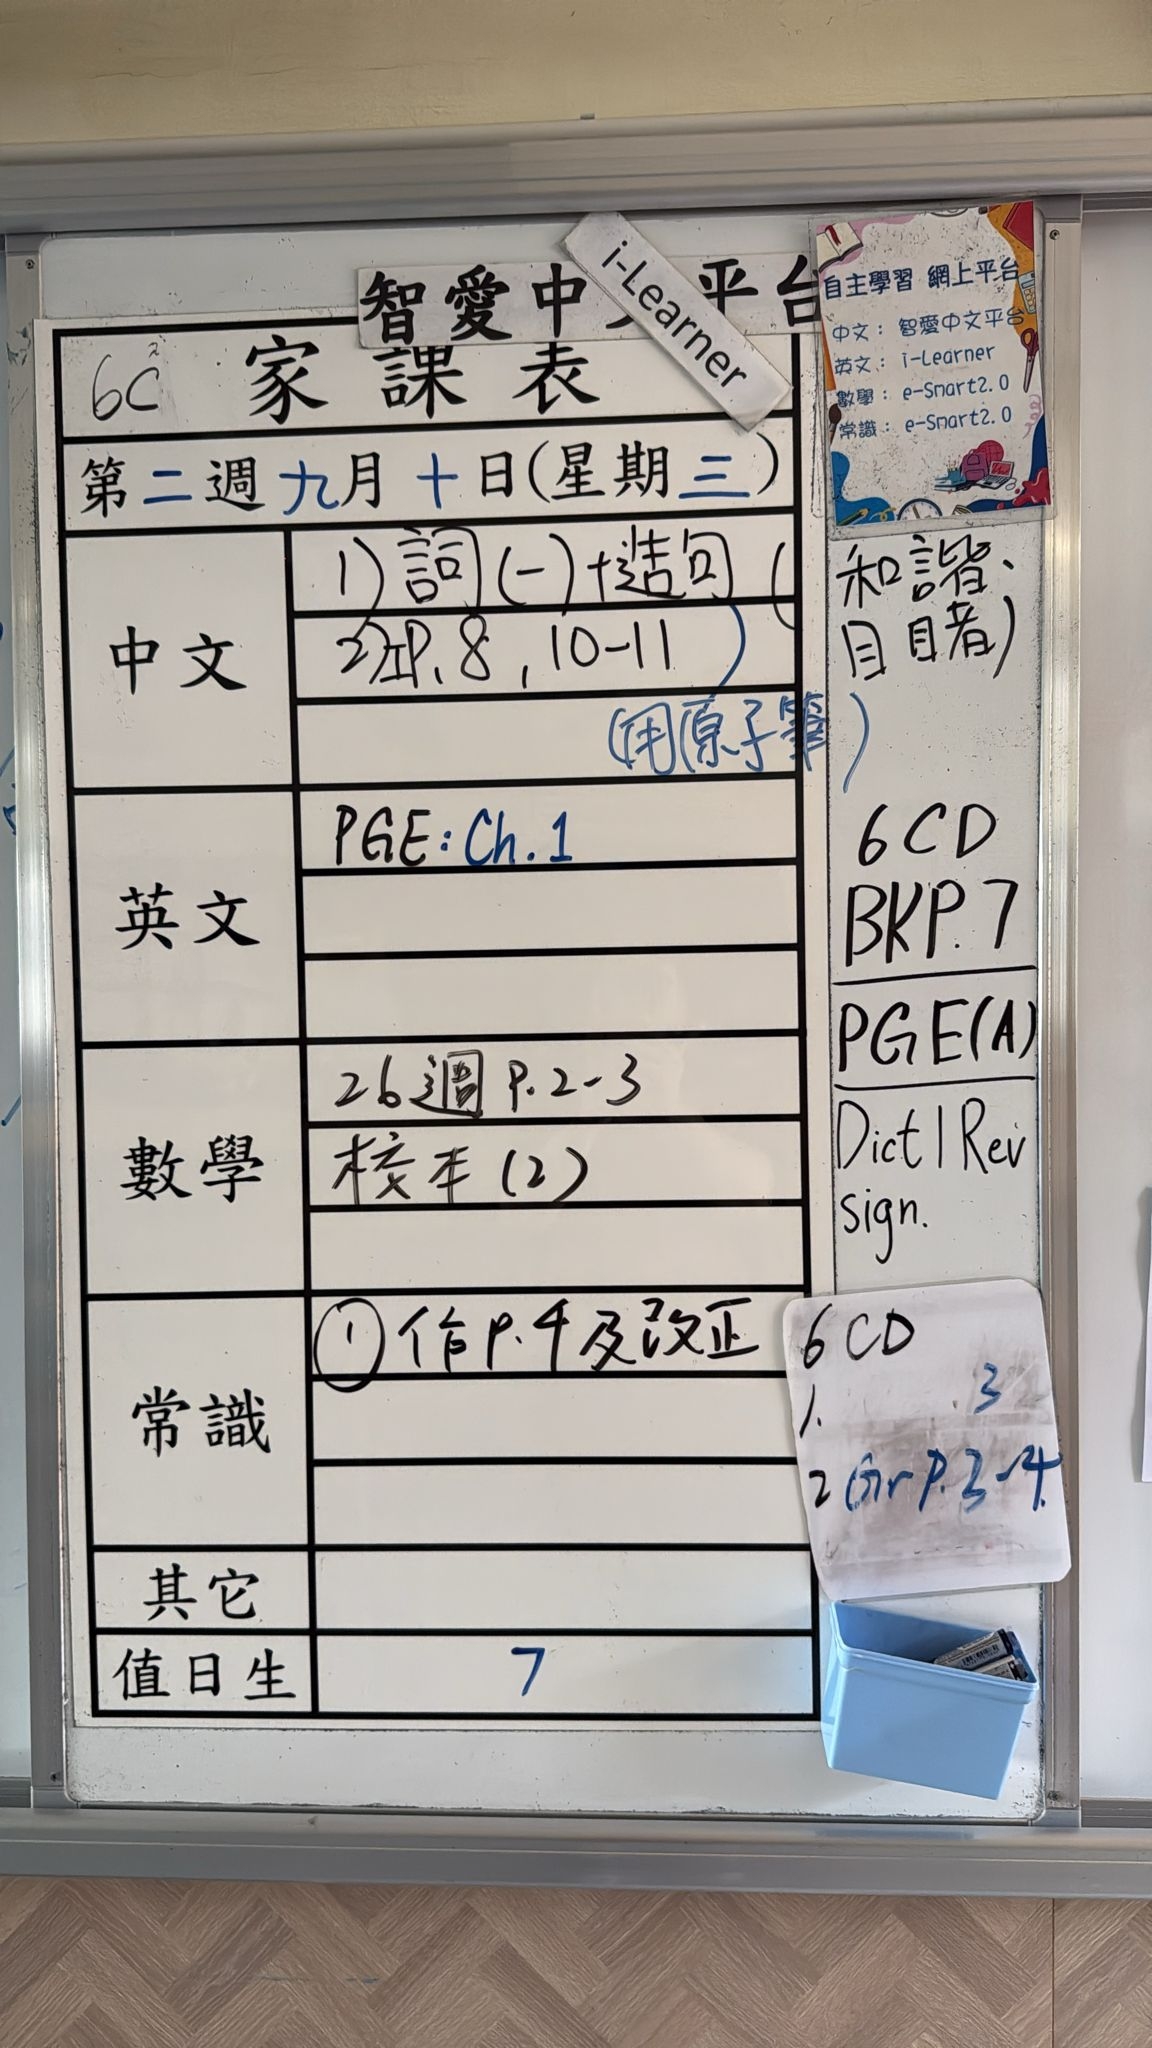 智愛中平台
i-Learner
6C 家課表
第二週九月十日(星期三)
中文
1) 詞(一)+造句 (和諧、目睹)
2) P.8, 10-11
(用原子筆)
英文
PGE: Ch.1
數學
26週 P.2-3
校本(2)
常識
① 作 P.4及改正
其它
值日生
7
自主學習 網上平台
中文: 智愛中文平台
英文: i-Learner
數學: e-Smart2.0
常識: e-Smart2.0
6CD
BKP.7
PGE(A)
Dict 1 Rev
sign.
6CD
1. 3
2 Gr P.3-4